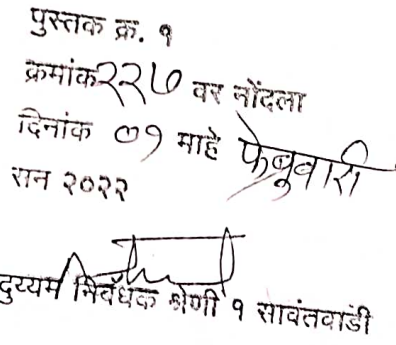 पुस्तक क्र. १
क्रमांक २२७ वर नोंदला
दिनांक ०१ माहे फेब्रुवारी
सन २०२२
दुय्यम निबंधक श्रेणी १ सावंतवाडी